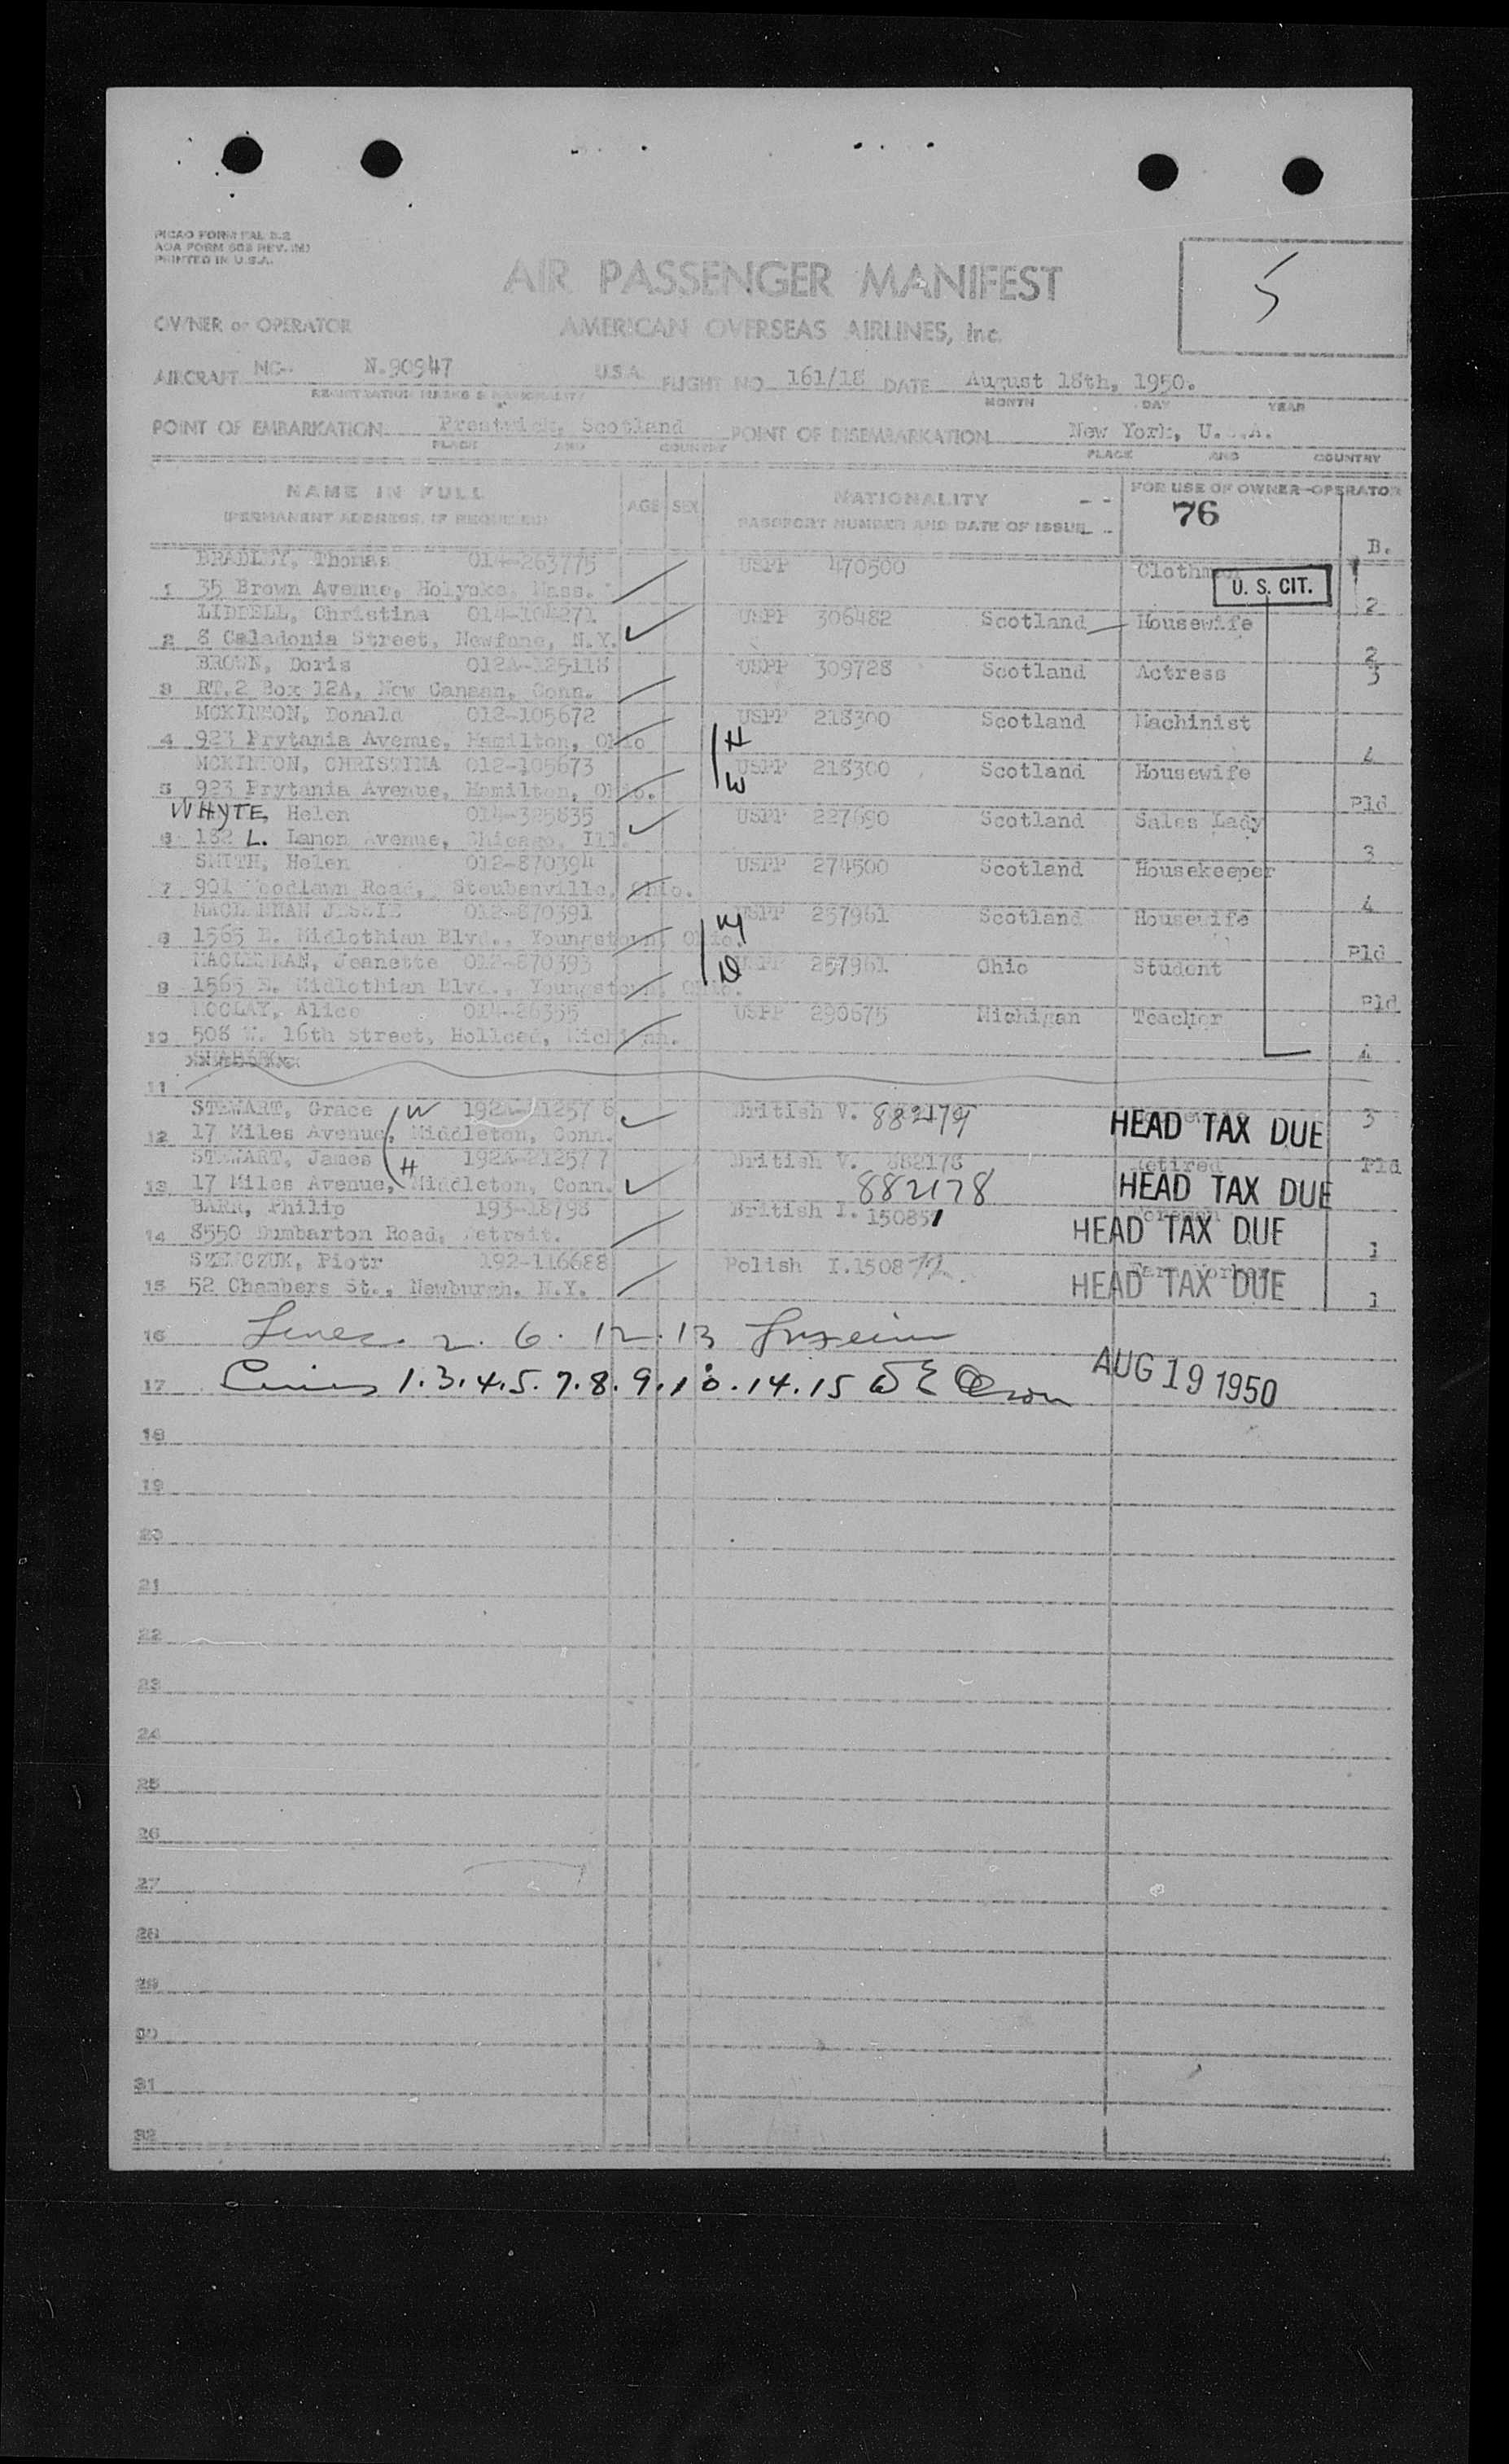 PICAO FORM FAL 2.2
AOA FORM 508 REV.
PRINTED IN U.S.A.
AIR PASSENGER MANIFEST
5
OWNER or OPERATOR AMERICAN OVERSEAS AIRLINES, Inc.
AIRCRAFT NC- N.90947 U.S.A. FLIGHT NO. 161/18 DATE August 18th, 1950.
REGISTRATION MARKS & NATIONALITY MONTH DAY YEAR
POINT OF EMBARKATION Prestwick, Scotland POINT OF DISEMBARKATION New York, U.S.A.
PLACE AND COUNTRY PLACE AND COUNTRY
NAME IN FULL AGE SEX NATIONALITY FOR USE OF OWNER-OPERATOR
(PERMANENT ADDRESS, IF REQUIRED) PASSPORT NUMBER AND DATE OF ISSUE 76
B.
BRADLEY, Thomas 014-263775 USPP 470500
1 35 Brown Avenue, Holyoke, Mass. U. S. CIT. 2
LIDDELL, Christina 014-104271 USPP 306482 Scotland Housewife
2 8 Caledonia Street, Newfane, N.Y. 2
BROWN, Doris 012A-125118 USPP 309728 Scotland Actress 3
3 RT.2 Box 12A, New Canaan, Conn.
MCKINNON, Donald 012-105672 USPP 218300 Scotland Machinist
4 923 Prytania Avenue, Hamilton, Ohio H 4
MCKINNON, CHRISTINA 012-105673 USPP 218300 Scotland Housewife
5 923 Prytania Avenue, Hamilton, Ohio. W Pld
WHYTE, Helen 014-325835 USPP 227690 Scotland Sales Lady
6 182 L. Lamon Avenue, Chicago, Ill. 3
SMITH, Helen 012-870394 USPP 274500 Scotland Housekeeper
7 901 Woodlawn Road, Steubenville, Ohio. 4
MACLENNAN JESSIE 012-870391 USPP 257961 Scotland Housewife
8 1565 E. Midlothian Blvd., Youngstown, Ohio. M Pld
MACLENNAN, Jeanette 012-870393 USPP 257961 Ohio Student
9 1565 E. Midlothian Blvd., Youngstown, Ohio. D Pld
MCCLAY, Alice 014-26355 USPP 290675 Michigan Teacher
10 508 W. 16th Street, Holland, Michigan. 4
11
STEWART, Grace W 192A-212576 British V. 882179 HEAD TAX DUE 3
12 17 Miles Avenue, Middleton, Conn.
STEWART, James H 192A-212577 British V. 882178 Retired Pld
13 17 Miles Avenue, Middleton, Conn. 882178 HEAD TAX DUE
BARR, Philip 193-18798 British I. 150851 Foreman
14 8550 Dumbarton Road, Detroit. HEAD TAX DUE 1
SZEWCZUK, Piotr 192-116688 Polish I.150872. Farm Worker
15 52 Chambers St., Newburgh, N.Y. HEAD TAX DUE 1
16 Lines. 2. 6. 12. 13
17 Lines 1.3.4.5.7.8.9.10.14.15 W E Olson AUG 19 1950
18
19
20
21
22
23
24
25
26
27
28
29
30
31
32